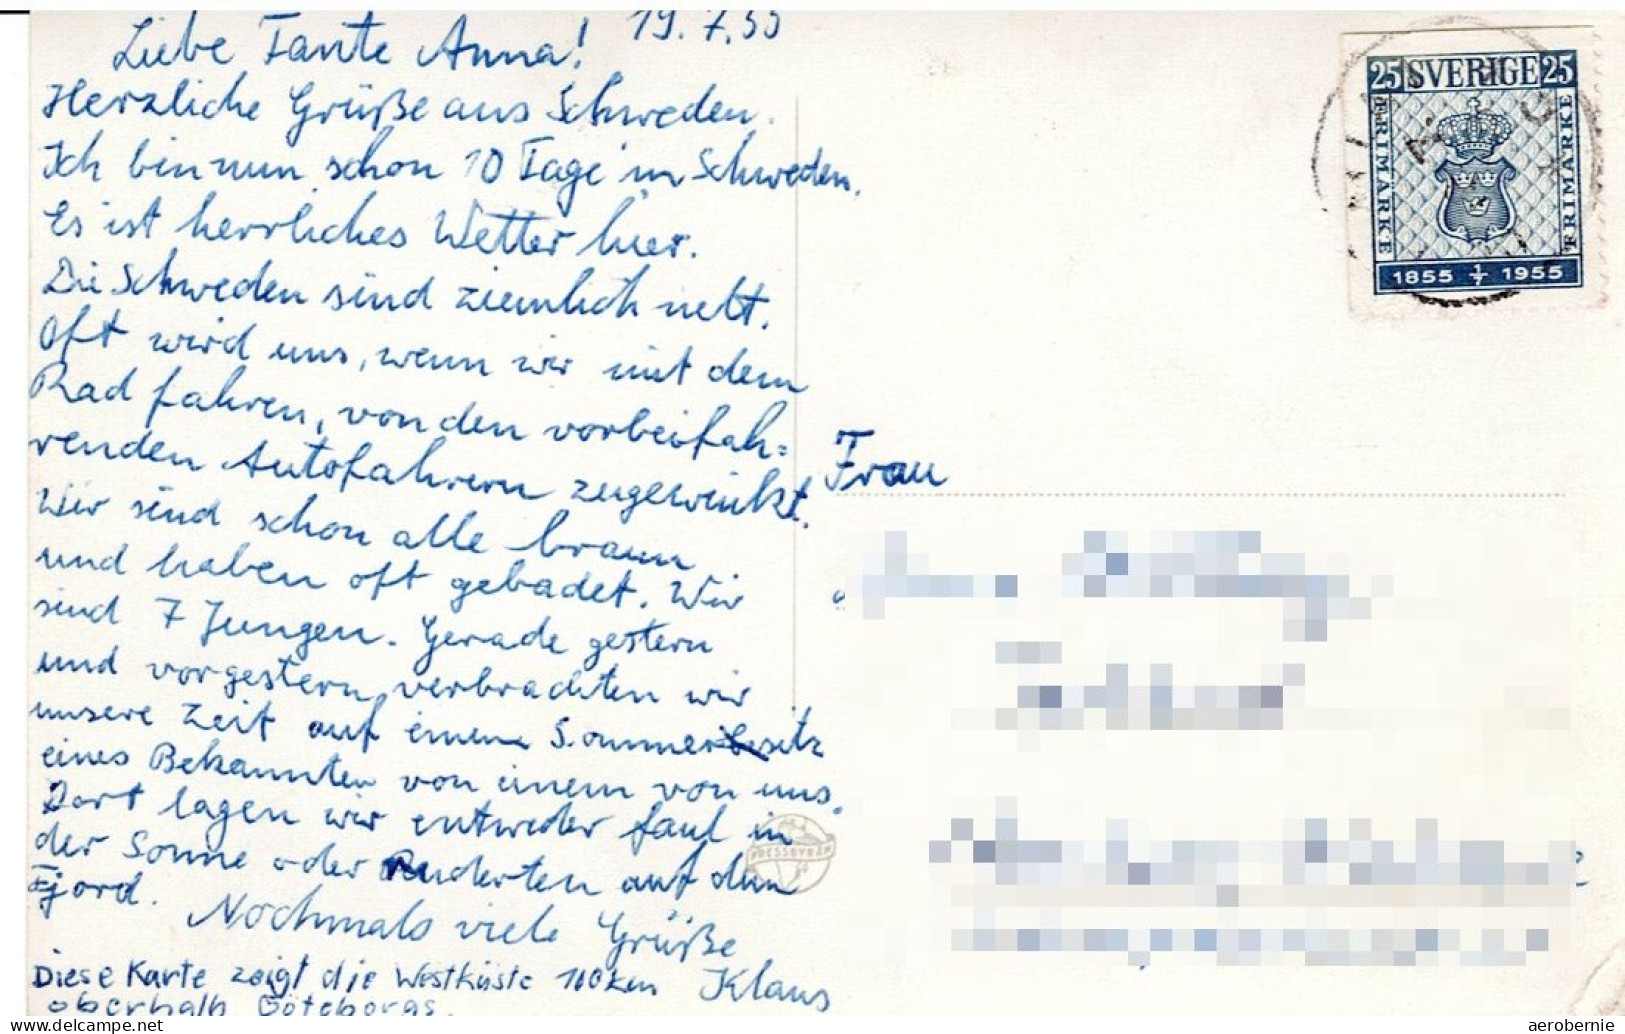 19.7.55
Liebe Tante Anna!
Herzliche Grüße aus Schweden.
Ich bin nun schon 10 Tage in Schweden.
Es ist herrliches Wetter hier.
Die Schweden sind ziemlich nett.
Oft wird uns, wenn wir mit dem
Rad fahren, von den vorbeifah=
renden Autofahrern zugewinkt.
Wir sind schon alle braun
und haben oft gebadet. Wir
sind 7 Jungen. Gerade gestern
und vorgestern verbrachten wir
unsere Zeit auf einem Sommersitz
eines Bekannten von einem von uns.
Dort lagen wir entweder faul in
der Sonne oder ruderten auf dem
Fjord.
Nochmals viele Grüße
Klaus
Diese Karte zeigt die Westküste 100 km
oberhalb Göteborgs.
Frau
25 SVERIGE 25
FRIMÄRKE
FRIMÄRKE
1855 1/7 1955
PRESSBYRÅN
delcampe.net
aerobernie